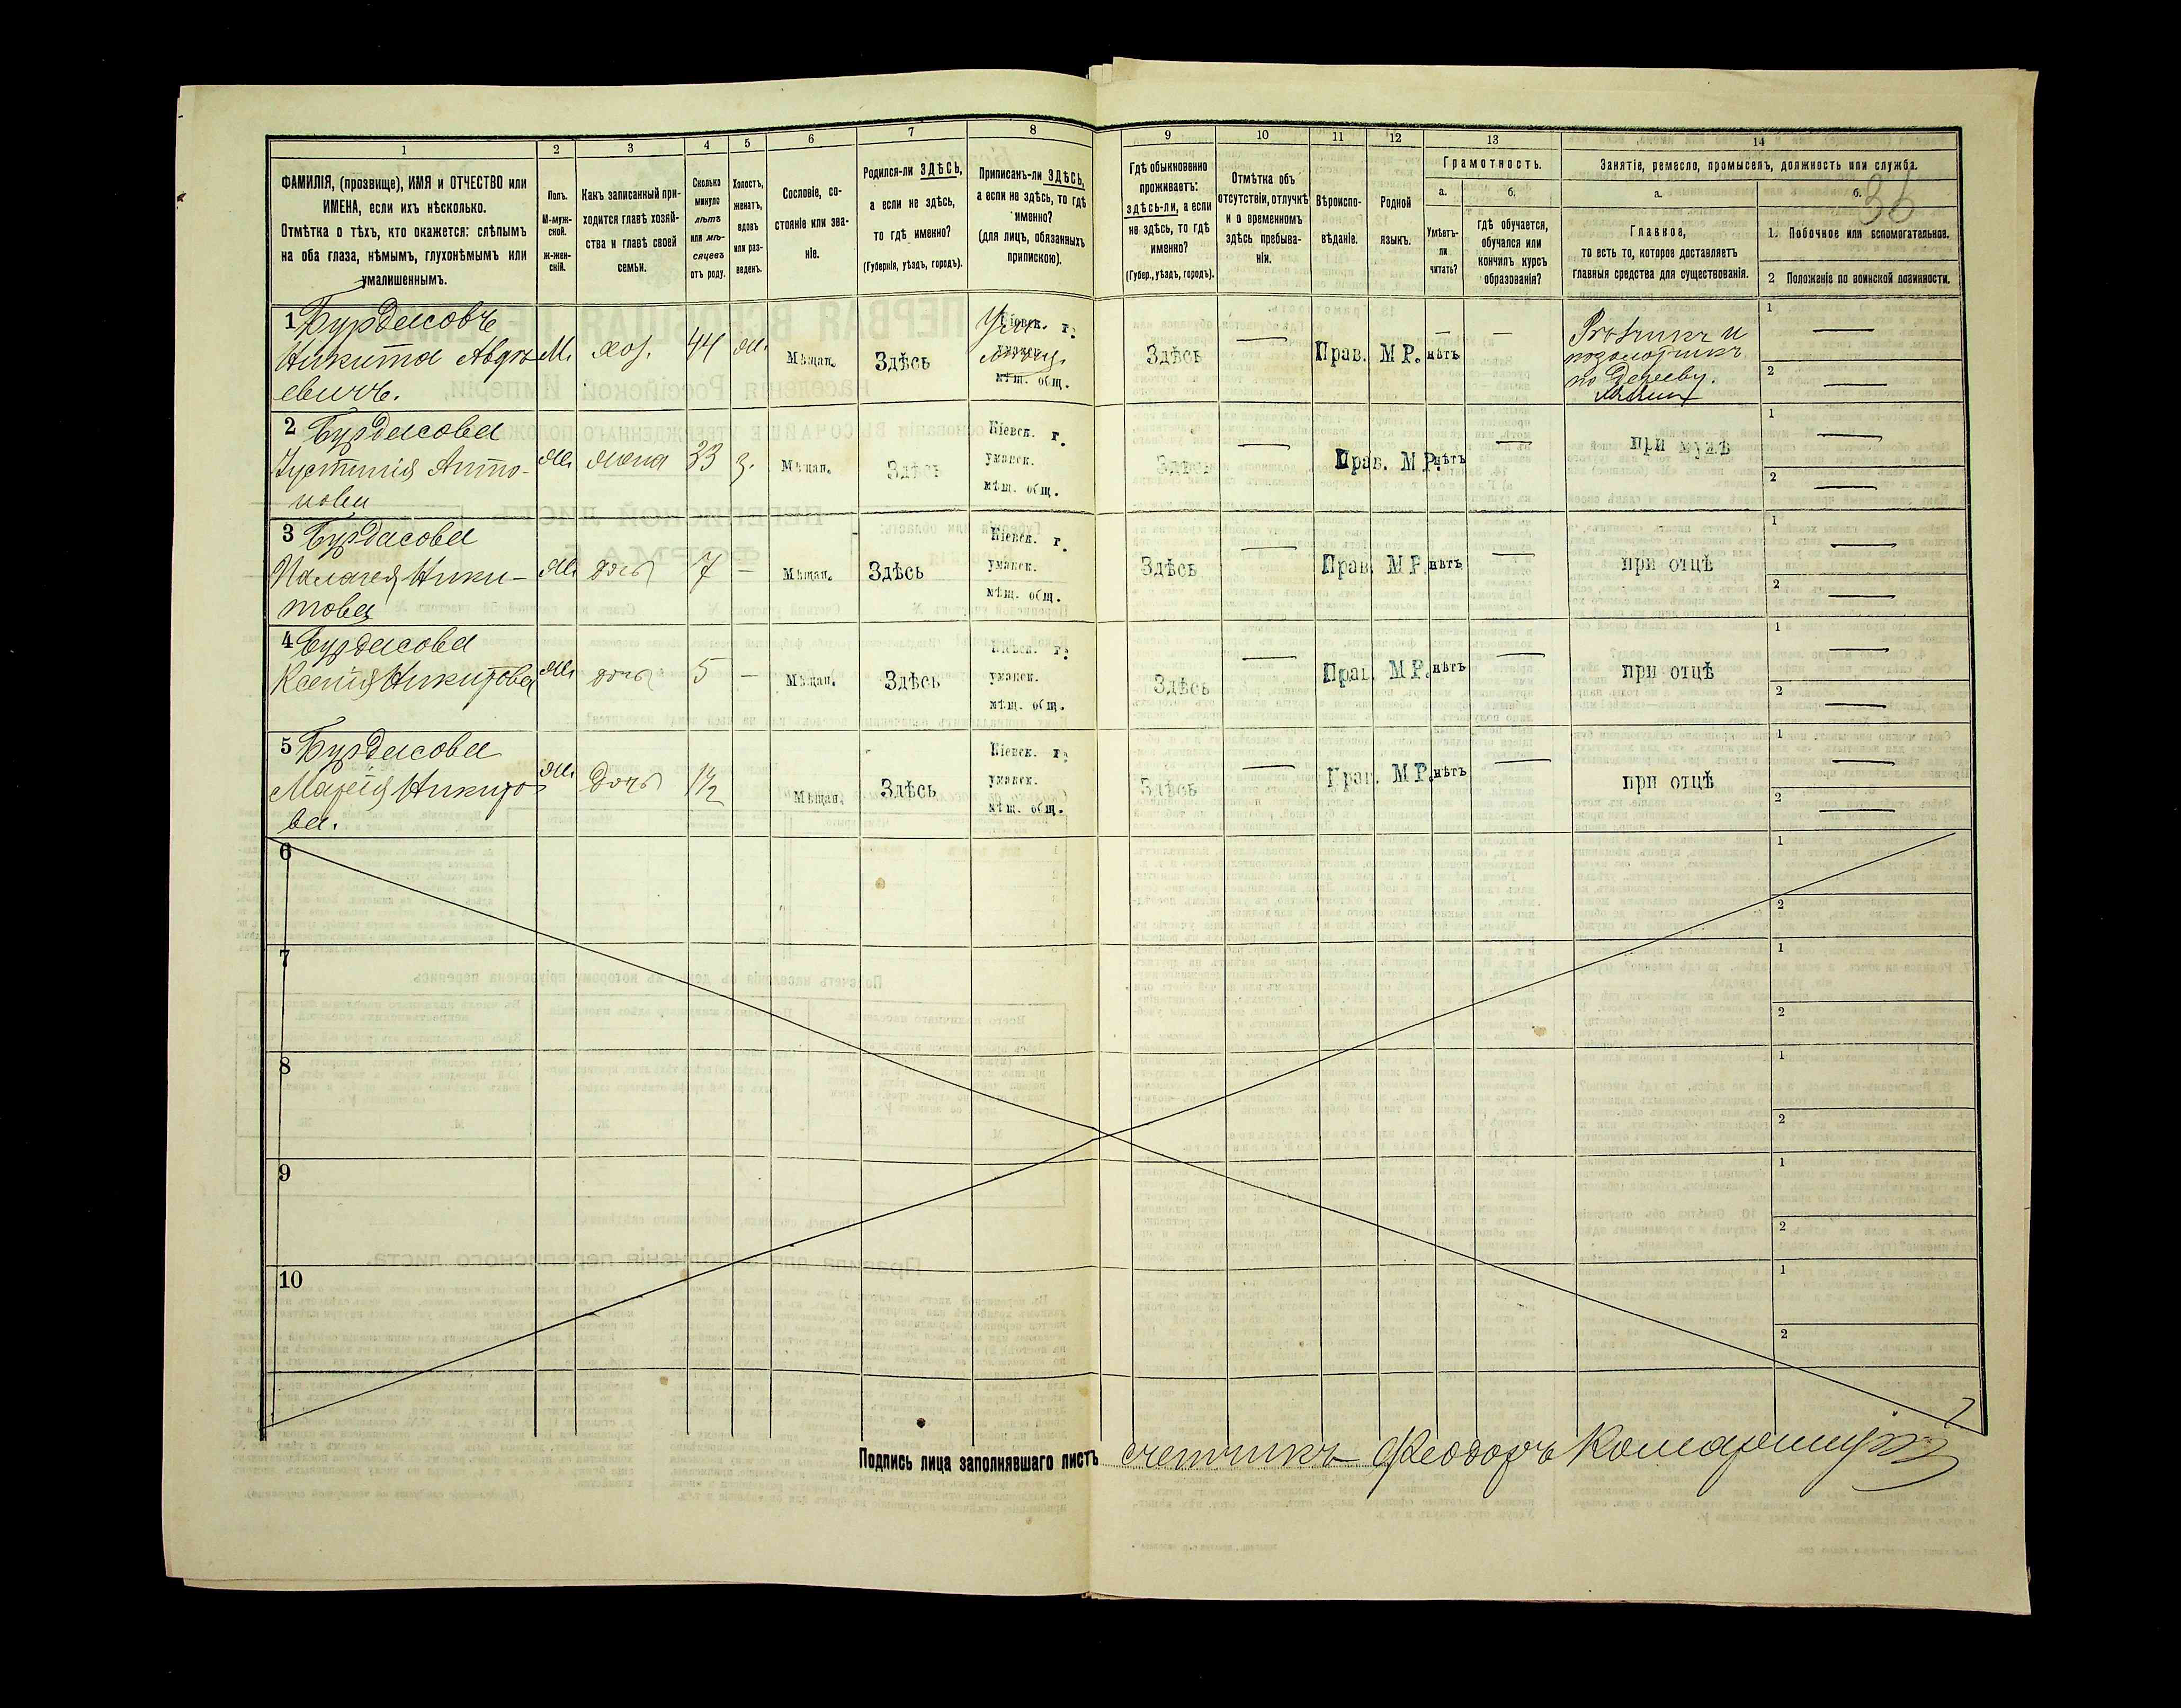 36
1
2
3
4
5
6
7
8
9
10
11
12
13
14
ФАМИЛІЯ, (прозвище), ИМЯ и ОТЧЕСТВО или
ИМЕНА, если ихъ нѣсколько.
Отмѣтка о тѣхъ, кто окажется: слѣпымъ
на оба глаза, нѣмымъ, глухонѣмымъ или
умалишеннымъ.
Полъ.
М-муж-
ской.
ж-жен-
скій.
Какъ записанный при-
ходится главѣ хозяй-
ства и главѣ своей
семьи.
Сколько
минуло
лѣтъ
или мѣ-
сяцевъ
отъ роду.
Холостъ,
женатъ,
вдовъ
или раз-
веденъ.
Сословіе, со-
стояніе или зва-
ніе.
Родился-ли ЗДѢСЬ,
а если не здѣсь,
то гдѣ именно?
(Губернія, уѣздъ, городъ).
Приписанъ-ли ЗДѢСЬ,
а если не здѣсь, то гдѣ
именно?
(для лицъ, обязанныхъ
припискою).
Гдѣ обыкновенно
проживаетъ:
здѣсь-ли, а если
не здѣсь, то гдѣ
именно?
(Губер., уѣздъ, городъ).
Отмѣтка объ
отсутствіи, отлучкѣ
и о временномъ
здѣсь пребыва-
ніи.
Вѣроиспо-
вѣданіе.
Родной
языкъ.
Грамотность.
а.
б.
Умѣетъ-
ли
читать?
Гдѣ обучается,
обучался или
кончилъ курсъ
образованія?
Занятіе, ремесло, промыселъ, должность или служба.
а.
б.
Главное,
то есть то, которое доставляетъ
главныя средства для существованія.
1. Побочное или вспомогательное.
2 Положеніе по воинской повинности.
1 Бурдасовъ
Никита Авдѣ-
евичъ.
М.
хоз.
44
ж.
Мѣщан.
Здѣсь
Кіевск. г.
уманск.
мѣщ. общ.
Здѣсь
—
Прав.
М Р.
нѣтъ
—
Рѣзчикъ и
позолотчикъ
по дереву.
1 —
2 —
2 Бурдасова
Іустинія Анто-
нова
Ж.
жена
33
з.
Мѣщан.
Здѣсь
Кіевск. г.
уманск.
мѣщ. общ.
Здѣсь
—
Прав.
М Р.
нѣтъ
—
при мужѣ
1 —
2 —
3 Бурдасова
Палагея Ники-
това
Ж.
дочь
7
—
Мѣщан.
Здѣсь
Кіевск. г.
уманск.
мѣщ. общ.
Здѣсь
—
Прав.
М Р.
нѣтъ
—
при отцѣ
1 —
2 —
4 Бурдасова
Ксенія Никитова
Ж.
дочь
5
—
Мѣщан.
Здѣсь
Кіевск. г.
уманск.
мѣщ. общ.
Здѣсь
—
Прав.
М Р.
нѣтъ
—
при отцѣ
1 —
2 —
5 Бурдасова
Марія Никито-
ва.
Ж.
дочь
1½
Мѣщан.
Здѣсь
Кіевск. г.
уманск.
мѣщ. общ.
Здѣсь
—
Прав.
М Р.
нѣтъ
—
при отцѣ
1 —
2 —
6
1
2
7
1
2
8
1
2
9
1
2
10
1
2
Подпись лица заполнявшаго листъ счетчикъ Феодоръ